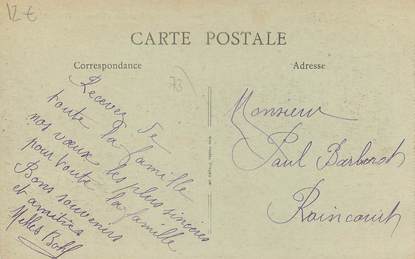 12 €
CARTE POSTALE
Correspondance
Adresse
73
Recevez de
toute la famille
nos vœux les plus sincères
pour toute la famille
Bons souvenirs
et amitiés
Monsieur
Paul Barberot
Raincourt